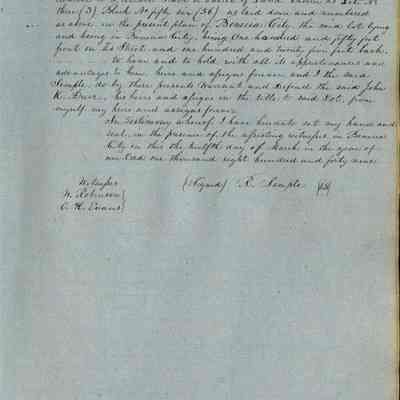 three (3) Block No fifty six (56) as laid down and numbered
as above in the present plan of Benicia City, the said lot lying
and being in Benicia City, being One hundred and fifty feet
front on the Street and one hundred and twenty five feet back.
to have and to hold with all its appurtenances and
advantages to him heirs and assigns forever and I the said
Semple, do by these presents Warrant and defend the said John
K. his heirs and assigns in the title to said Lot, from
myself my heirs and assigns forever
In Testimony whereof I have hereunto set my hand and
seal, in the presence of the assisting witnesses in Benicia
City on this the twelfth day of March in the year of
our Lord one thousand eight hundred and forty nine
Witnesses (Signed) R. Semple
W. Robinson
O. H. Evans